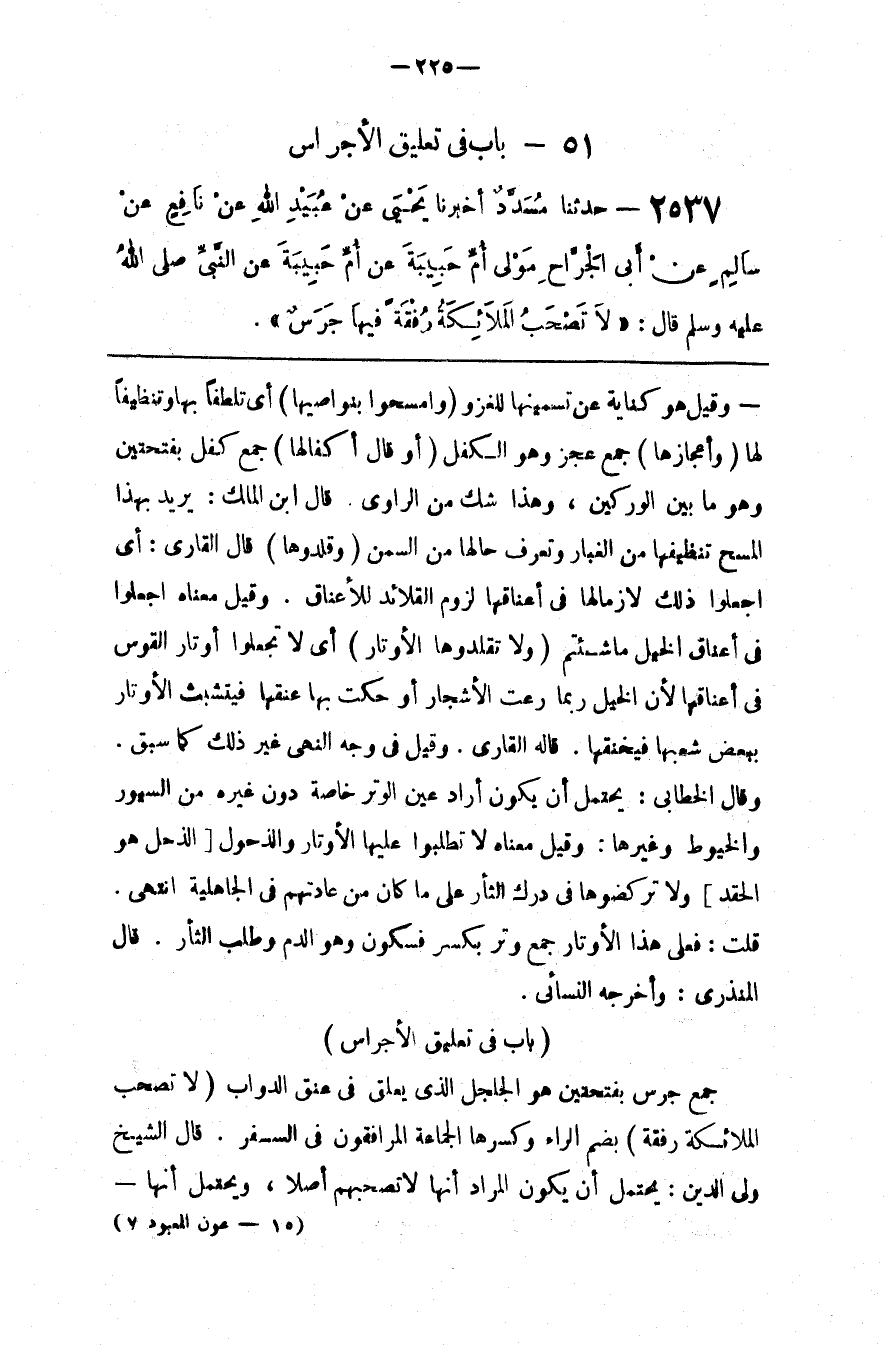 — ٢٢٥ —
٥١ — باب فى تعليق الأجراس
٢٥٣٧ — حدثنا مُسَدَّدٌ أخبرنا يَحْيَى عنْ عُبَيْدِ اللهِ عنْ نَافِعٍ عنْ
سَالِمٍ عنْ أَبى الْجَرَّاحِ مَوْلَى أُمِّ حَبِيبَةَ عن أُمِّ حَبِيبَةَ عن النَّبىِّ صلى اللهُ
عليه وسلم قال : « لاَ تَصْحَبُ المَلاَئِكَةُ رُفْقَةً فيهاَ جَرَسٌ » .
— وقيل هو كناية عن تسمينها للغزو ( وامسحوا بنواصيها ) أى تلطفاً بها وتنظيفاً
لها ( وأعجازها ) جمع عجز وهو الكفل ( أو قال أكفالها ) جمع كفل بفتحتين
وهو ما بين الوركين ، وهذا شك من الراوى . قال ابن المالك : يريد بهذا
المسح تنظيفها من الغبار وتعرف حالها من السمن ( وقلدوها ) قال القارى : أى
اجعلوا ذلك لازمالها فى أعناقها لزوم القلائد للأعناق . وقيل معناه اجعلوا
فى أعناق الخيل ماشئتم ( ولا تقلدوها الأوتار ) أى لا تجعلوا أوتار القوس
فى أعناقها لأن الخيل ربما رعت الأشجار أو حكت بها عنقها فيتشبث الأوتار
ببعض شعبها فيخنقها . قاله القارى . وقيل فى وجه النهى غير ذلك كما سبق .
وقال الخطابى : يحتمل أن يكون أراد عين الوتر خاصة دون غيره من السيور
والخيوط وغيرها : وقيل معناه لا تطلبوا عليها الأوتار والذحول [ الذحل هو
الحقد ] ولا تركضوها فى درك الثأر على ما كان من عادتهم فى الجاهلية انتهى .
قلت : فعلى هذا الأوتار جمع وتر بكسر فسكون وهو الدم وطلب الثأر . قال
المنذرى : وأخرجه النسائى .
( باب فى تعليق الأجراس )
جمع جرس بفتحتين هو الجلجل الذى يعلق فى عنق الدواب ( لا تصحب
الملائكة رفقة ) بضم الراء وكسرها الجماعة المرافقون فى السفر . قال الشيخ
ولى الدين : يحتمل أن يكون المراد أنها لاتصحبهم أصلا ، ويحتمل أنها —
( ١٥ — عون المعبود ٧ )